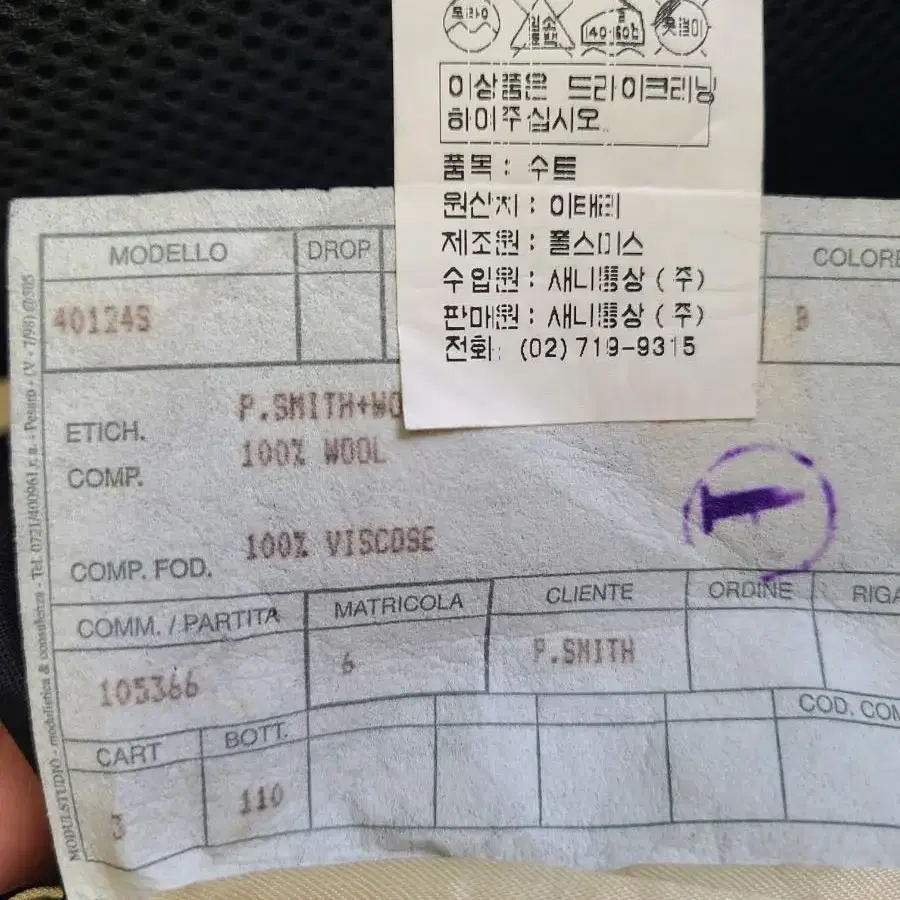 드라이
염소표백
140-160℃
손짜기
이상품은 드라이크리닝
하여주십시오.
품목 : 수트
원산지 : 이태리
제조원 : 폴스미스
수입원 : 새니통상 (주)
판매원 : 새니통상 (주)
전화: (02)719-9315
MODELLO DROP COLORE
40124S B
ETICH. P.SMITH+WO
COMP. 100% WOOL
COMP. FOD. 100% VISCOSE
COMM. / PARTITA MATRICOLA CLIENTE ORDINE RIGA
105366 6 P.SMITH
COD. COM
CART BOTT.
3 110
MODULSTUDIO - modulistica & consulenza - Tel. 0721/400961 r. a. - Pesaro - (V - 7/98) @505